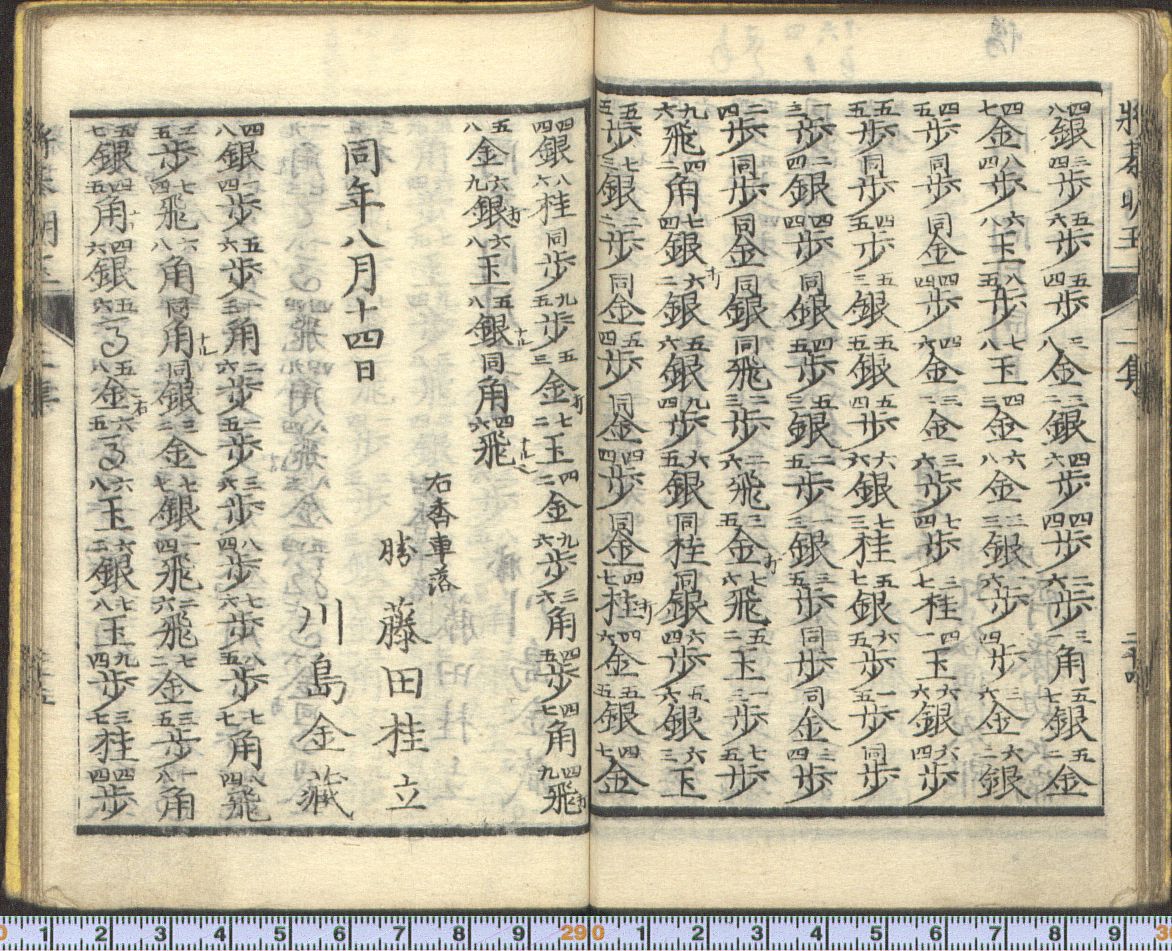 將棊明玉 二集 二十四
四八銀 三四歩 五六歩 五四歩 三八金 三二銀 四六歩 四四歩 三六歩 三一角 五七銀 五二金
四七金 八四歩 六八玉 八五歩 七八玉 四三金 六八金 三三銀 二六歩 七四歩 三六金 六二銀
四五歩 同歩 同金 四四歩 四六金 三二金 三六歩 七四歩 三七桂 四一玉 六六銀 六四歩
五五歩 同歩 四五歩 五三銀 五五銀 五四歩 六六銀 七七桂 五七銀 六五歩 一五歩 同歩
一三歩 二四銀 四四歩 同銀 四五歩 五三銀 二五歩 一三銀 三五歩 同歩 同金 三四歩
二四歩 同歩 同金 同銀 同飛 二三歩 二六飛 三五金打 七六飛 五二玉 一三歩 七五歩
九六飛 四二角 七四銀 六二銀打 五六銀 九四歩 六五銀 同桂 同銀 六四歩 五六銀 六三玉
五五歩 七三銀 二二歩 同金 五四歩 同金 四四歩 同金 四七桂打 四六金 五五銀 四七金
四四銀 八六桂 同歩 九五歩 五三金打 七二玉 四二金 九六歩 三六角 四五歩 四七角 四九飛打
五八金 六九銀打 六八玉 五八銀ナル 同角 四六飛ナル
右香車落
勝 藤田桂立
川島金藏
同年八月十四日
四八銀 一四歩 五六歩 一三角 二六歩 一五歩 三六歩 八四歩 七六歩 八五歩 七七角 八四飛
二五歩 七四飛 六八角 同角ナル 同銀 三二金 七七銀 一四飛 二六飛 七二金 三五歩 一八角
五七銀 四五角ナル 四六銀 五六る 五八金右 六五る 六八玉 六二銀 七八玉 九四歩 三七桂 四四歩